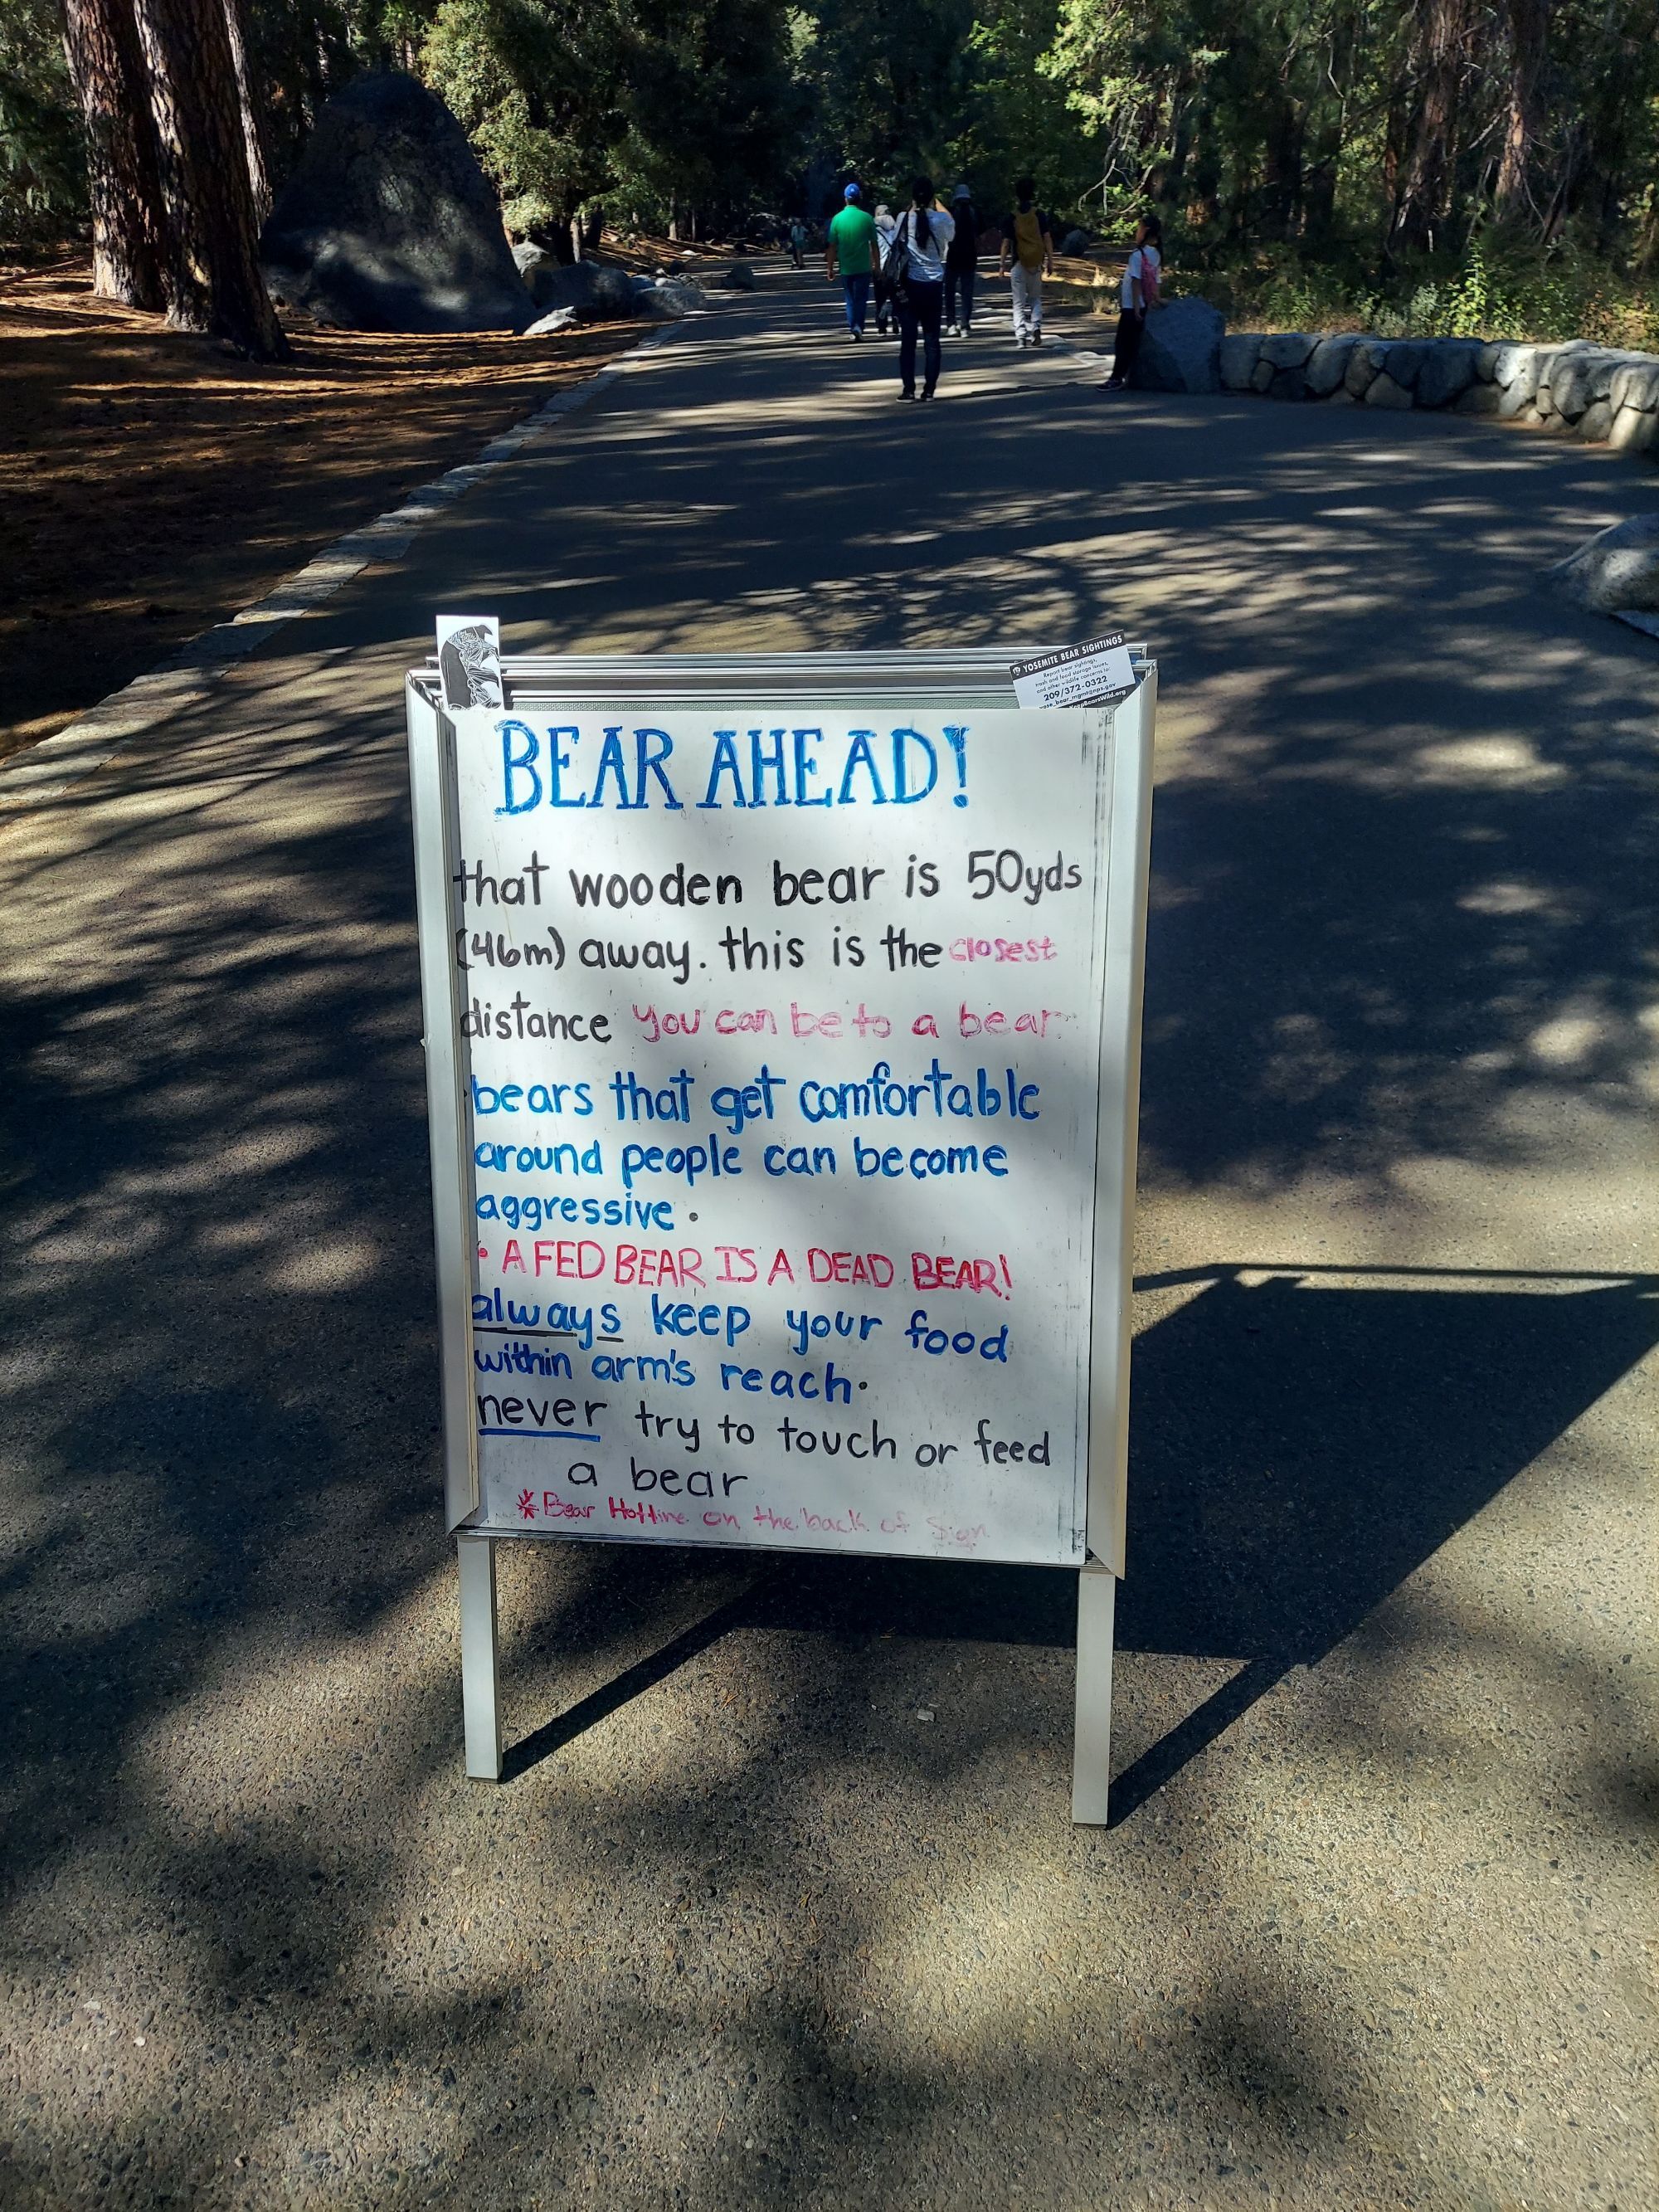 YOSEMITE BEAR SIGHTINGS
Report bear sightings,
trash and food storage issues,
and other wildlife concerns to:
209/372-0322
yose_bear_mgmt@nps.gov
KeepBearsWild.org
BEAR AHEAD!
that wooden bear is 50yds
(46m) away. this is the closest
distance you can be to a bear
bears that get comfortable
around people can become
aggressive.
• A FED BEAR IS A DEAD BEAR!
always keep your food
within arm's reach.
never try to touch or feed
a bear
* Bear Hotline on the back of Sign